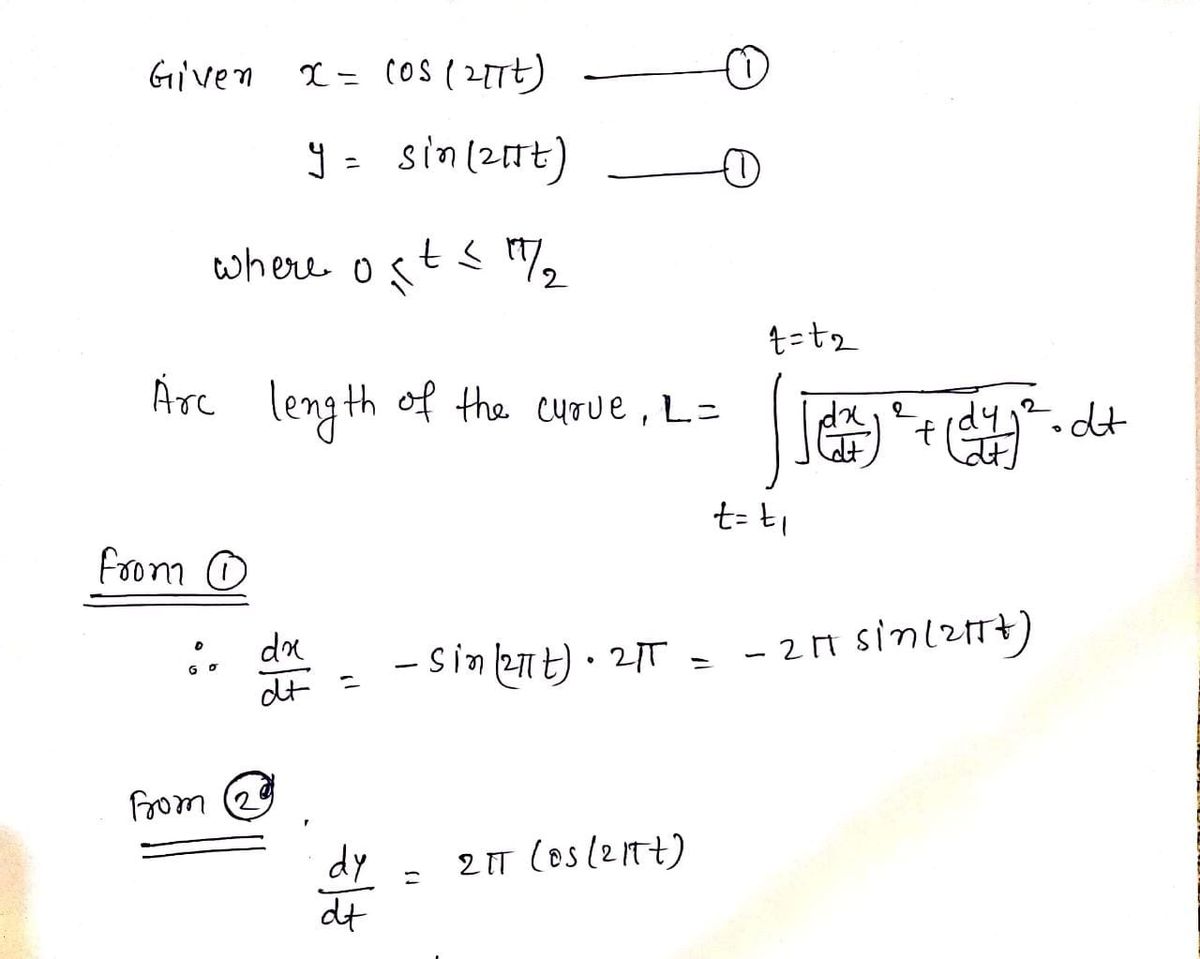 Given x = cos(2πt) ——— ①
y = sin(2πt) ——— ①
where 0 ≤ t ≤ π/2
Arc length of the curve, L = ∫_{t=t₁}^{t=t₂} √((dx/dt)² + (dy/dt)²) · dt
from ①
∴ dx/dt = -sin(2πt) · 2π = -2π sin(2πt)
From ②,
dy/dt = 2π cos(2πt)